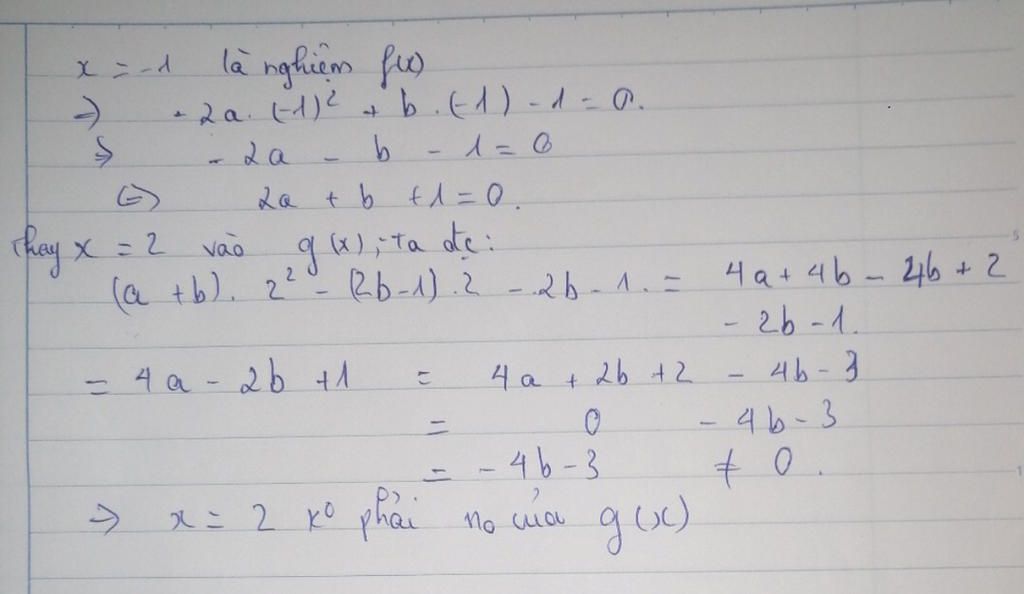 x = -1 là nghiệm f(x)
=> -2a. (-1)² + b. (-1) - 1 = 0.
=> -2a - b - 1 = 0
<=> 2a + b + 1 = 0.
Thay x = 2 vào g(x), ta đc:
(a + b). 2² - (2b-1).2 - 2b - 1. = 4a + 4b - 4b + 2
- 2b - 1.
= 4a - 2b + 1 = 4a + 2b + 2 - 4b - 3
= 0 - 4b - 3
= - 4b - 3 ≠ 0.
=> x = 2 k⁰ phải no của g(x)